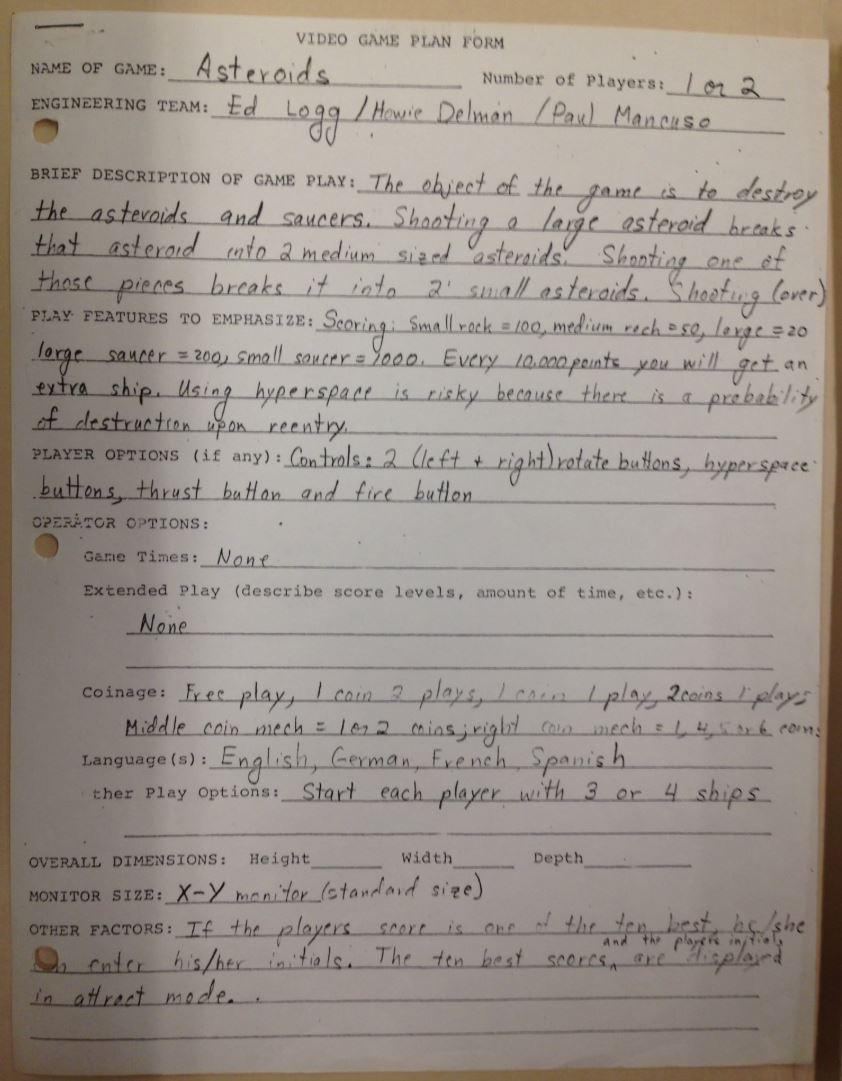 VIDEO GAME PLAN FORM
NAME OF GAME: Asteroids Number of Players: 1 or 2
ENGINEERING TEAM: Ed Logg / Howie Delman / Paul Mancuso
BRIEF DESCRIPTION OF GAME PLAY: The object of the game is to destroy
the asteroids and saucers. Shooting a large asteroid breaks
that asteroid into 2 medium sized asteroids. Shooting one of
those pieces breaks it into 2 small asteroids. Shooting (over)
PLAY FEATURES TO EMPHASIZE: Scoring: Small rock = 100, medium rock = 50, large = 20
large saucer = 200, small saucer = 1000. Every 10,000 points you will get an
extra ship. Using hyperspace is risky because there is a probability
of destruction upon reentry.
PLAYER OPTIONS (if any): Controls: 2 (left + right) rotate buttons, hyperspace
buttons, thrust button and fire button
OPERATOR OPTIONS:
Game Times: None
Extended Play (describe score levels, amount of time, etc.):
None
Coinage: Free play, 1 coin 2 plays, 1 coin 1 play, 2 coins 1 plays
Middle coin mech = 1 or 2 coins; right coin mech = 1, 4, 5 or 6 coins
Language(s): English, German, French, Spanish
ther Play Options: Start each player with 3 or 4 ships
OVERALL DIMENSIONS: Height Width Depth
MONITOR SIZE: X-Y monitor (standard size)
OTHER FACTORS: If the players score is one of the ten best, he/she
enter his/her initials. The ten best scores, and the players initials are displayed
in attract mode.